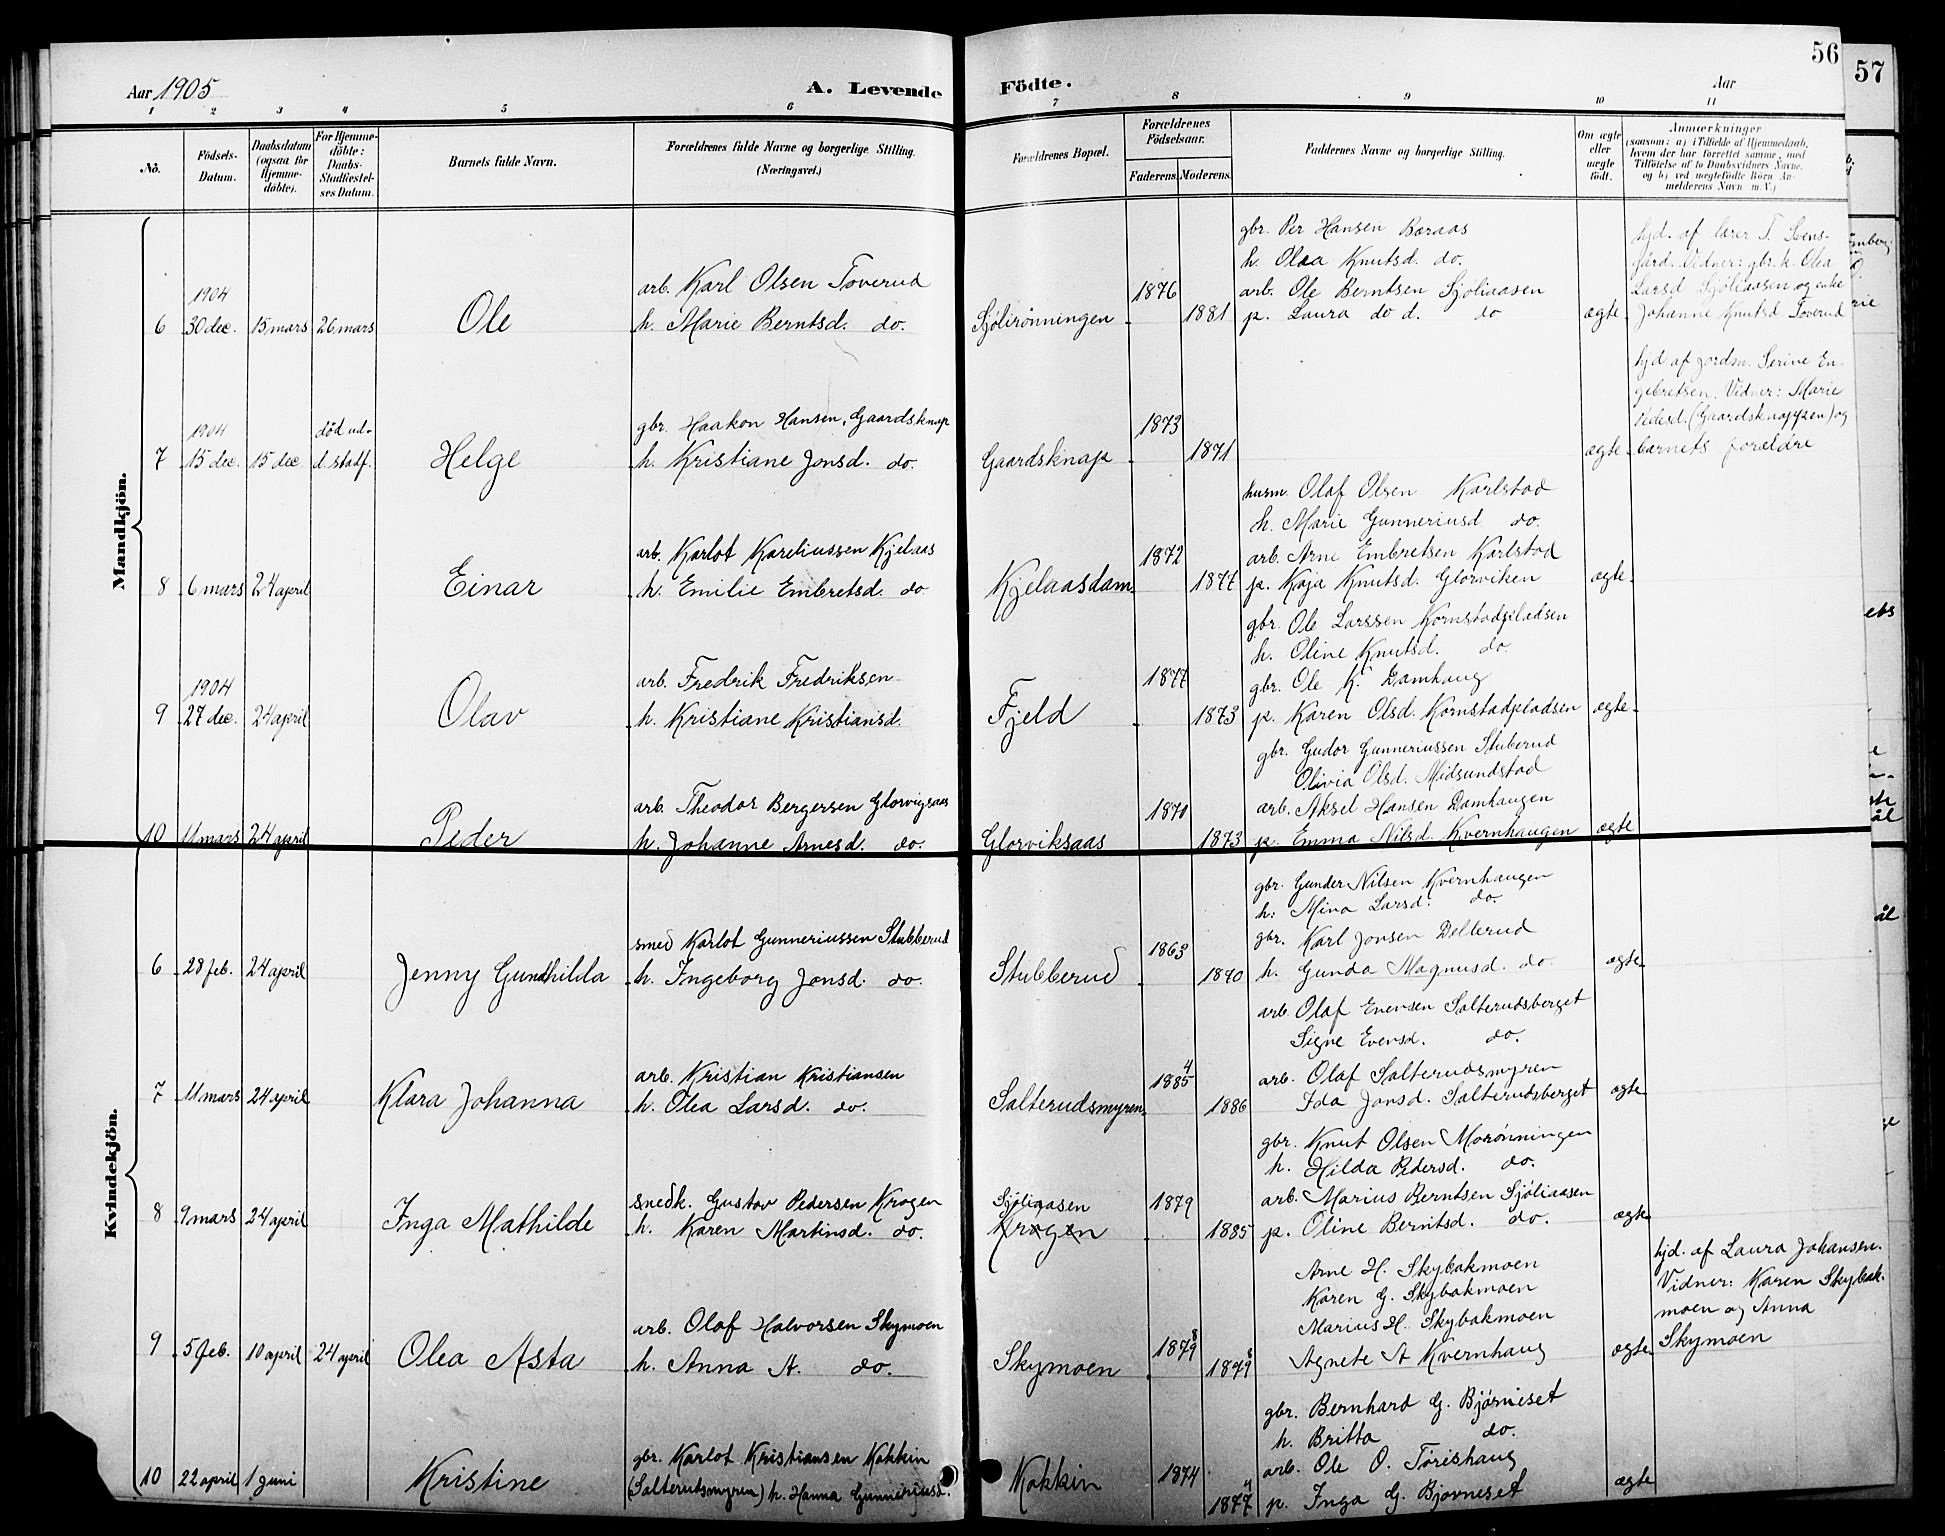 56
57
Aar 1905
A. Levende Födte.
Aar
1 2 3 4 5 6 7 8 9 10 11
No.
Födsels-Datum.
Daabsdatum (ogsaa for Hjemme-döbte).
For Hjemme-döbte: Daabs-Stadfæstel-ses Datum.
Barnets fulde Navn.
Forældrenes fulde Navne og borgerlige Stilling. (Næringsvei.)
Forældrenes Bopæl.
Forældrenes Födselsaar.
Faderens. Moderens.
Faddernes Navne og borgerlige Stilling.
Om ægte eller uægte født.
Anmærkninger
(saasom: a) i Tilfælde af Hjemmedaab, hvem der har forrettet samme, med Tilföielse af to Daabsvidners Navne, og b) ved uægtefödte Börn An-melderens Navn m. V.)
Mandkjön.
6
1904
30 dec.
15 mars
26 mars
Ole
arb. Karl Olsen Toverud
h. Marie Berntsd. do.
Sjölirönningen
1876
1881
gbr. Per Hansen Baraas
h. Olea Knutsd. do.
arb. Ole Berntsen Sjöliaasen
p. Laura do d. do
ægte
hjd. af lærer T. Svens-
gård. Vidner: gbr. k. Olea
Larsd Sjöliaasen og enke
Johanne Knutsd. Toverud
7
1904
15 dec.
15 dec
död ud.
d. stadf.
Helge
gbr. Haakon Hansen, Gaardsknap
h. Kristiane Jonsd. do.
Gaardsknap
1873
1871
ægte
hjd af jordm. Serine En-
gebretsen. Vidner: Marie
Pedersd. (Gaardsknappen) og
barnets forældre
8
6 mars
24 april
Einar
arb. Karlot Kareliussen Kjelaas
h. Emilie Embretsd. do
Kjelaasdam
1872
1877
husm. Olaf Olsen Karlstad
h. Marie Gunneriusd do.
arb. Arne Embretsen Karlstad
p. Kaja Knutsd. Glorviken
ægte
9
1904
27 dec.
24 april
Olav
arb. Fredrik Fredriksen
h. Kristiane Kristiansd.
Fjeld
1877
1873
gbr. Ole Larssen Kornstadpladsen
h. Oline Knutsd. do.
gbr. Ole K. Damhaug
p. Karen Olsd. Kornstadpladsen
ægte
10
11 mars
24 april
Peder
arb. Theodor Bergersen Glorvigsaas
h. Johanne Arnesd. do.
Glorviksaas
1870
1873
gbr. Gudor Gunneriussen Stuberud
Olivia Olsd. Midsundstad
arb. Aksel Hansen Damhaugen
p. Emma Nilsd. Kvernhaugen
ægte
Kvindekjön.
6
28 feb.
24 april
Jenny Gundhilda
smed Karlot Gunneriussen Stubberud
h. Ingeborg Jonsd. do.
Stubberud
1863
1870
gbr. Gunder Nilsen Kvernhaugen
h. Mina Larsd. do.
gbr. Karl Jonsen Delterud
h. Gunda Magnusd. do
ægte
7
11 mars
24 april
Klara Johanna
arb. Kristian Kristiansen
h. Olea Larsd. do.
Salterudsmyren
4
1885
1886
arb. Olaf Evensen Salterudsberget
Signe Evensd. do.
arb. Olaf Salterudsmyren
Ida Jonsd. Salterudsberget
ægte
8
9 mars
24 april
Inga Mathilde
snedk. Gustav Pedersen Krogen
h. Karen Martinsd. do.
Sjöliaasen
Krogen
1879
1885
gbr. Knut Olsen Morönningen
h. Hilda Pedersd. do.
arb. Marius Berntsen Sjöliaasen
p. Oline Berntsd. do.
ægte
9
5 feb.
10 april
24 april
Olea Asta
arb. Olaf Halvorsen Skymoen
h. Anna A. do.
Skymoen
8
1879
1879
Arne H. Skybakmoen
Karen G. Skybakmoen
Marius H. Skybakmoen
Agnete A Kvernhaug
ægte
hjd. af Laura Johansen.
Vidner: Karen Skybak-
moen og Anna
Skymoen
10
22 april
1 juni
Kristine
gbr. Karlot Kristiansen Kokkin
(Salterudsmyren) h. Hanna Gunneriusd.
Kokkin
1874
1877
gbr. Bernhard G. Bjørneset
h. Britta do.
arb. Ole O. Törishaug
p. Inga G. Bjorneset
ægte